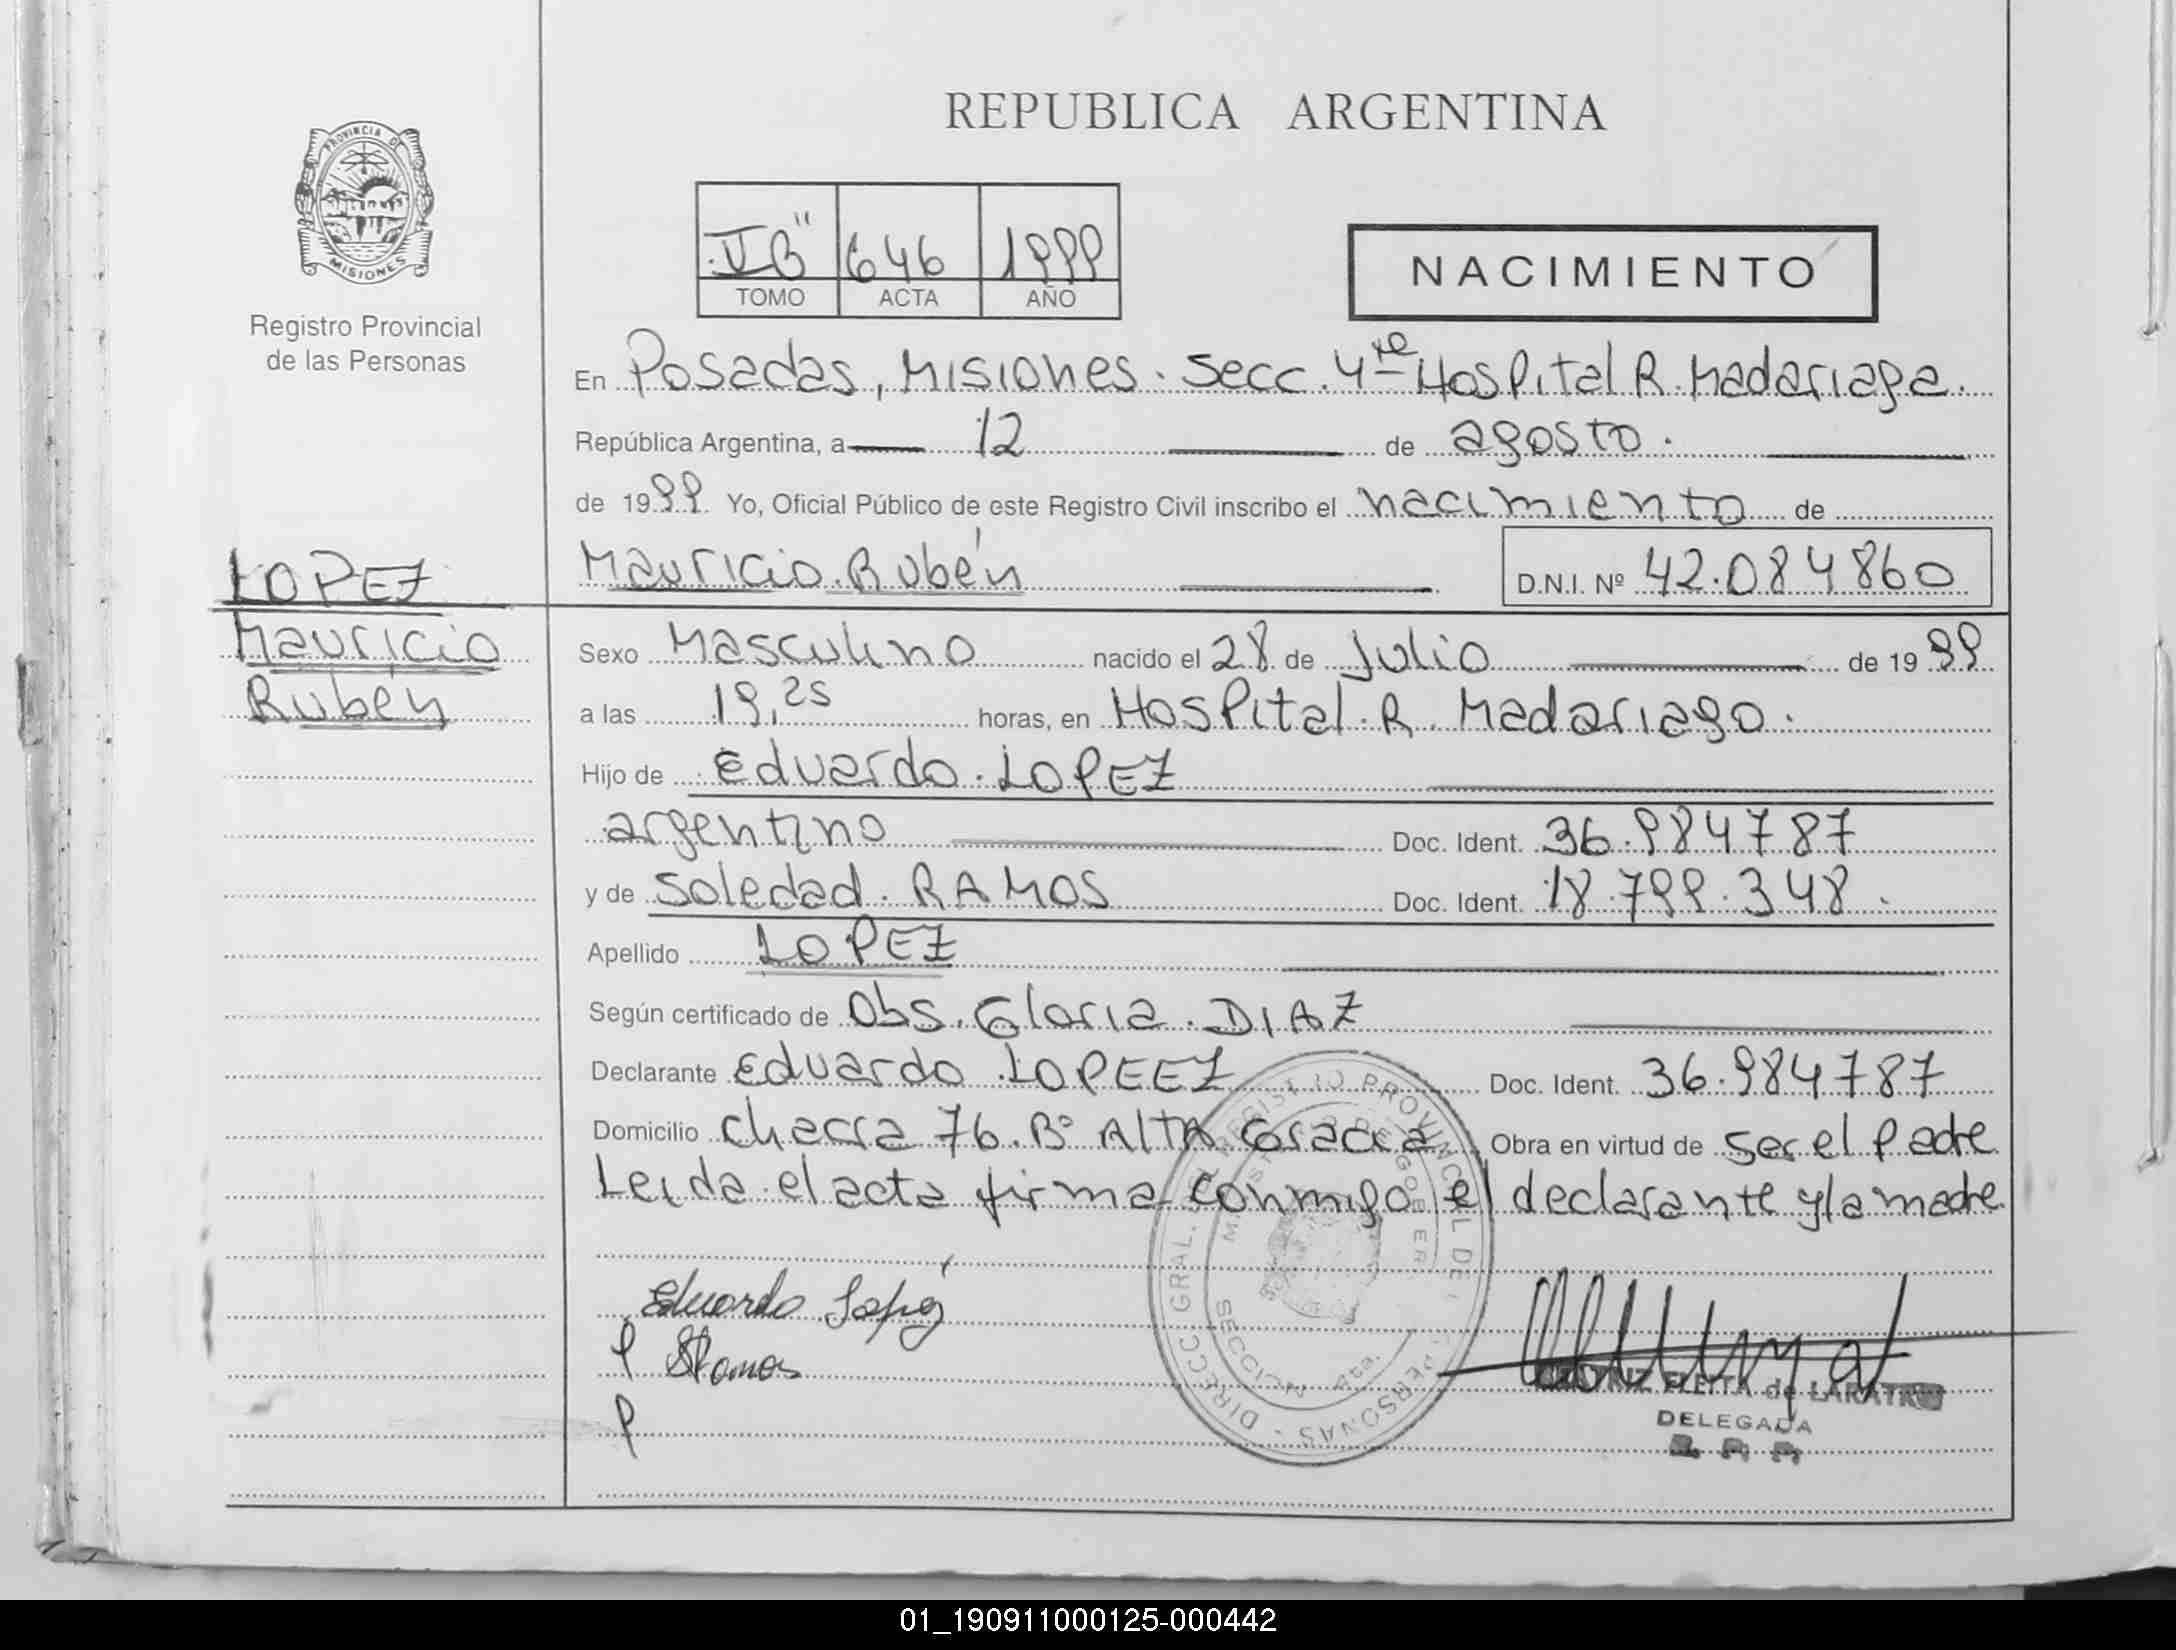 REPUBLICA ARGENTINA
PROVINCIA DE
MISIONES
Registro Provincial
de las Personas
646 1999
TOMO ACTA AÑO
NACIMIENTO
En Posadas, Misiones. Secc. 4ta Hospital R. Madariaga.
República Argentina, a 12 de agosto.
de 1999. Yo, Oficial Público de este Registro Civil inscribo el nacimiento de
Mauricio Rubén D.N.I. Nº 42.084860
LOPEZ
Mauricio
Rubén
Sexo Masculino nacido el 28 de Julio de 1999
a las 19,25 horas, en Hospital R. Madariaga.
Hijo de Eduardo LOPEZ
argentino Doc. Ident. 36.984787
y de Soledad RAMOS Doc. Ident. 18.799.348.
Apellido LOPEZ
Según certificado de Obs. Gloria DIAZ
Declarante Eduardo LOPEEZ Doc. Ident. 36.984787
Domicilio Chacra 76. Bº ALTA Gracia Obra en virtud de Ser el Padre
Leida el acta firma conmigo el declarante y la madre.
Eduardo Lopez
SRamos
DIRECC GRAL. DEL REGISTRO PROVINCIAL DE PERSONAS
SECCION 4ta.
FLEITA de
DELEGADA
01_190911000125-000442